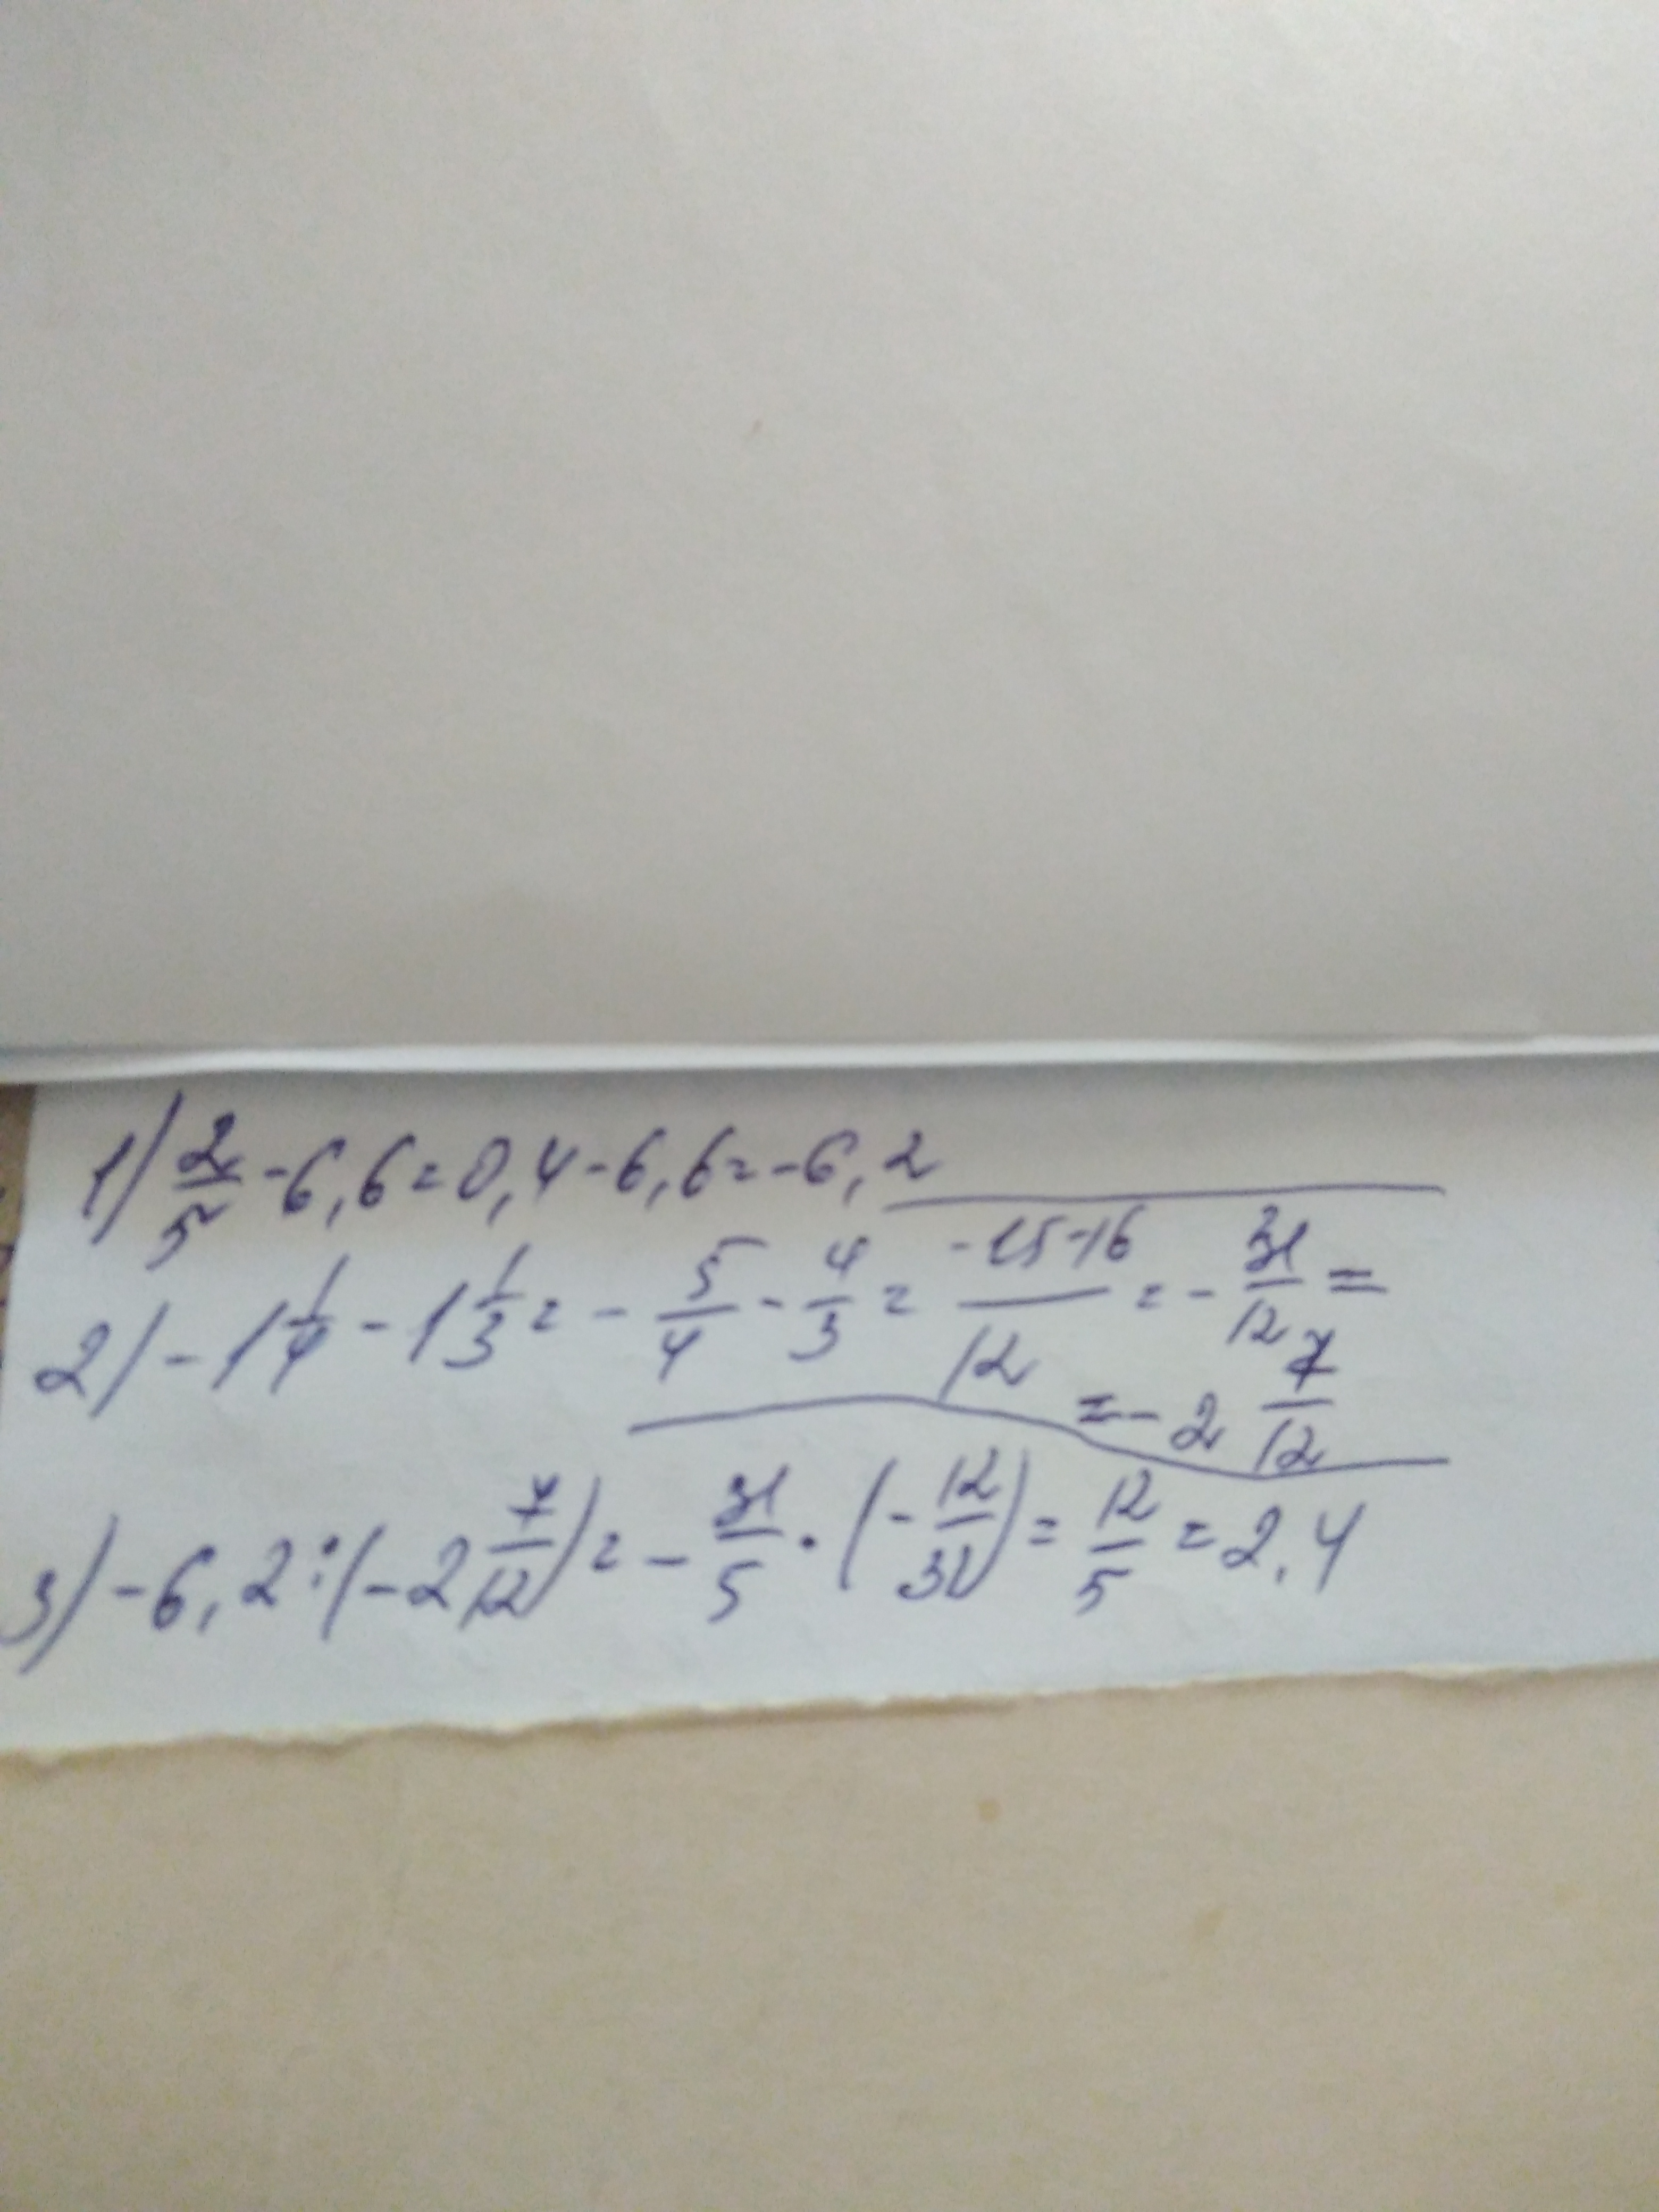 1) 2/5 - 6,6 = 0,4 - 6,6 = -6,2
2) -1 1/4 - 1 1/3 = - 5/4 - 4/3 = (-15-16)/12 = - 31/12 =
= -2 7/12
3) -6,2 : (-2 7/12) = - 31/5 · (- 12/31) = 12/5 = 2,4